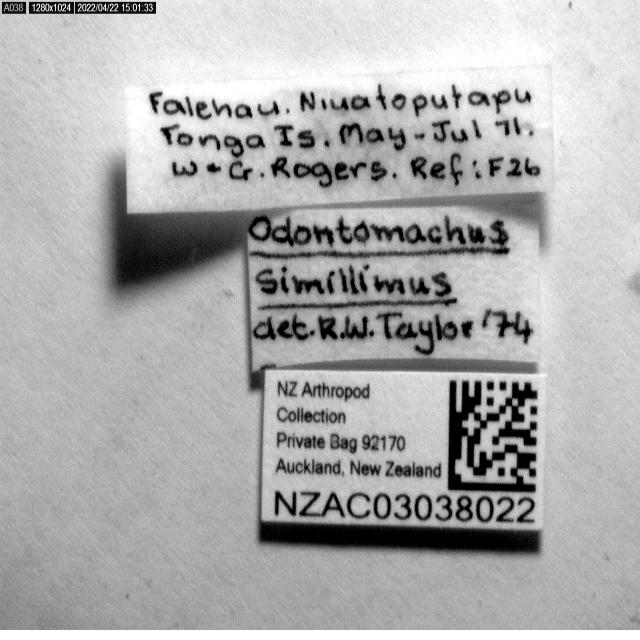 A038 1280x1024 2022/04/22 15:01:33
Falehau. Niuatoputapu
Tonga Is. May - Jul 71.
W + G. Rogers. Ref: F26
Odontomachus
simillimus
det. R.W. Taylor '74
NZ Arthropod
Collection
Private Bag 92170
Auckland, New Zealand
NZAC03038022